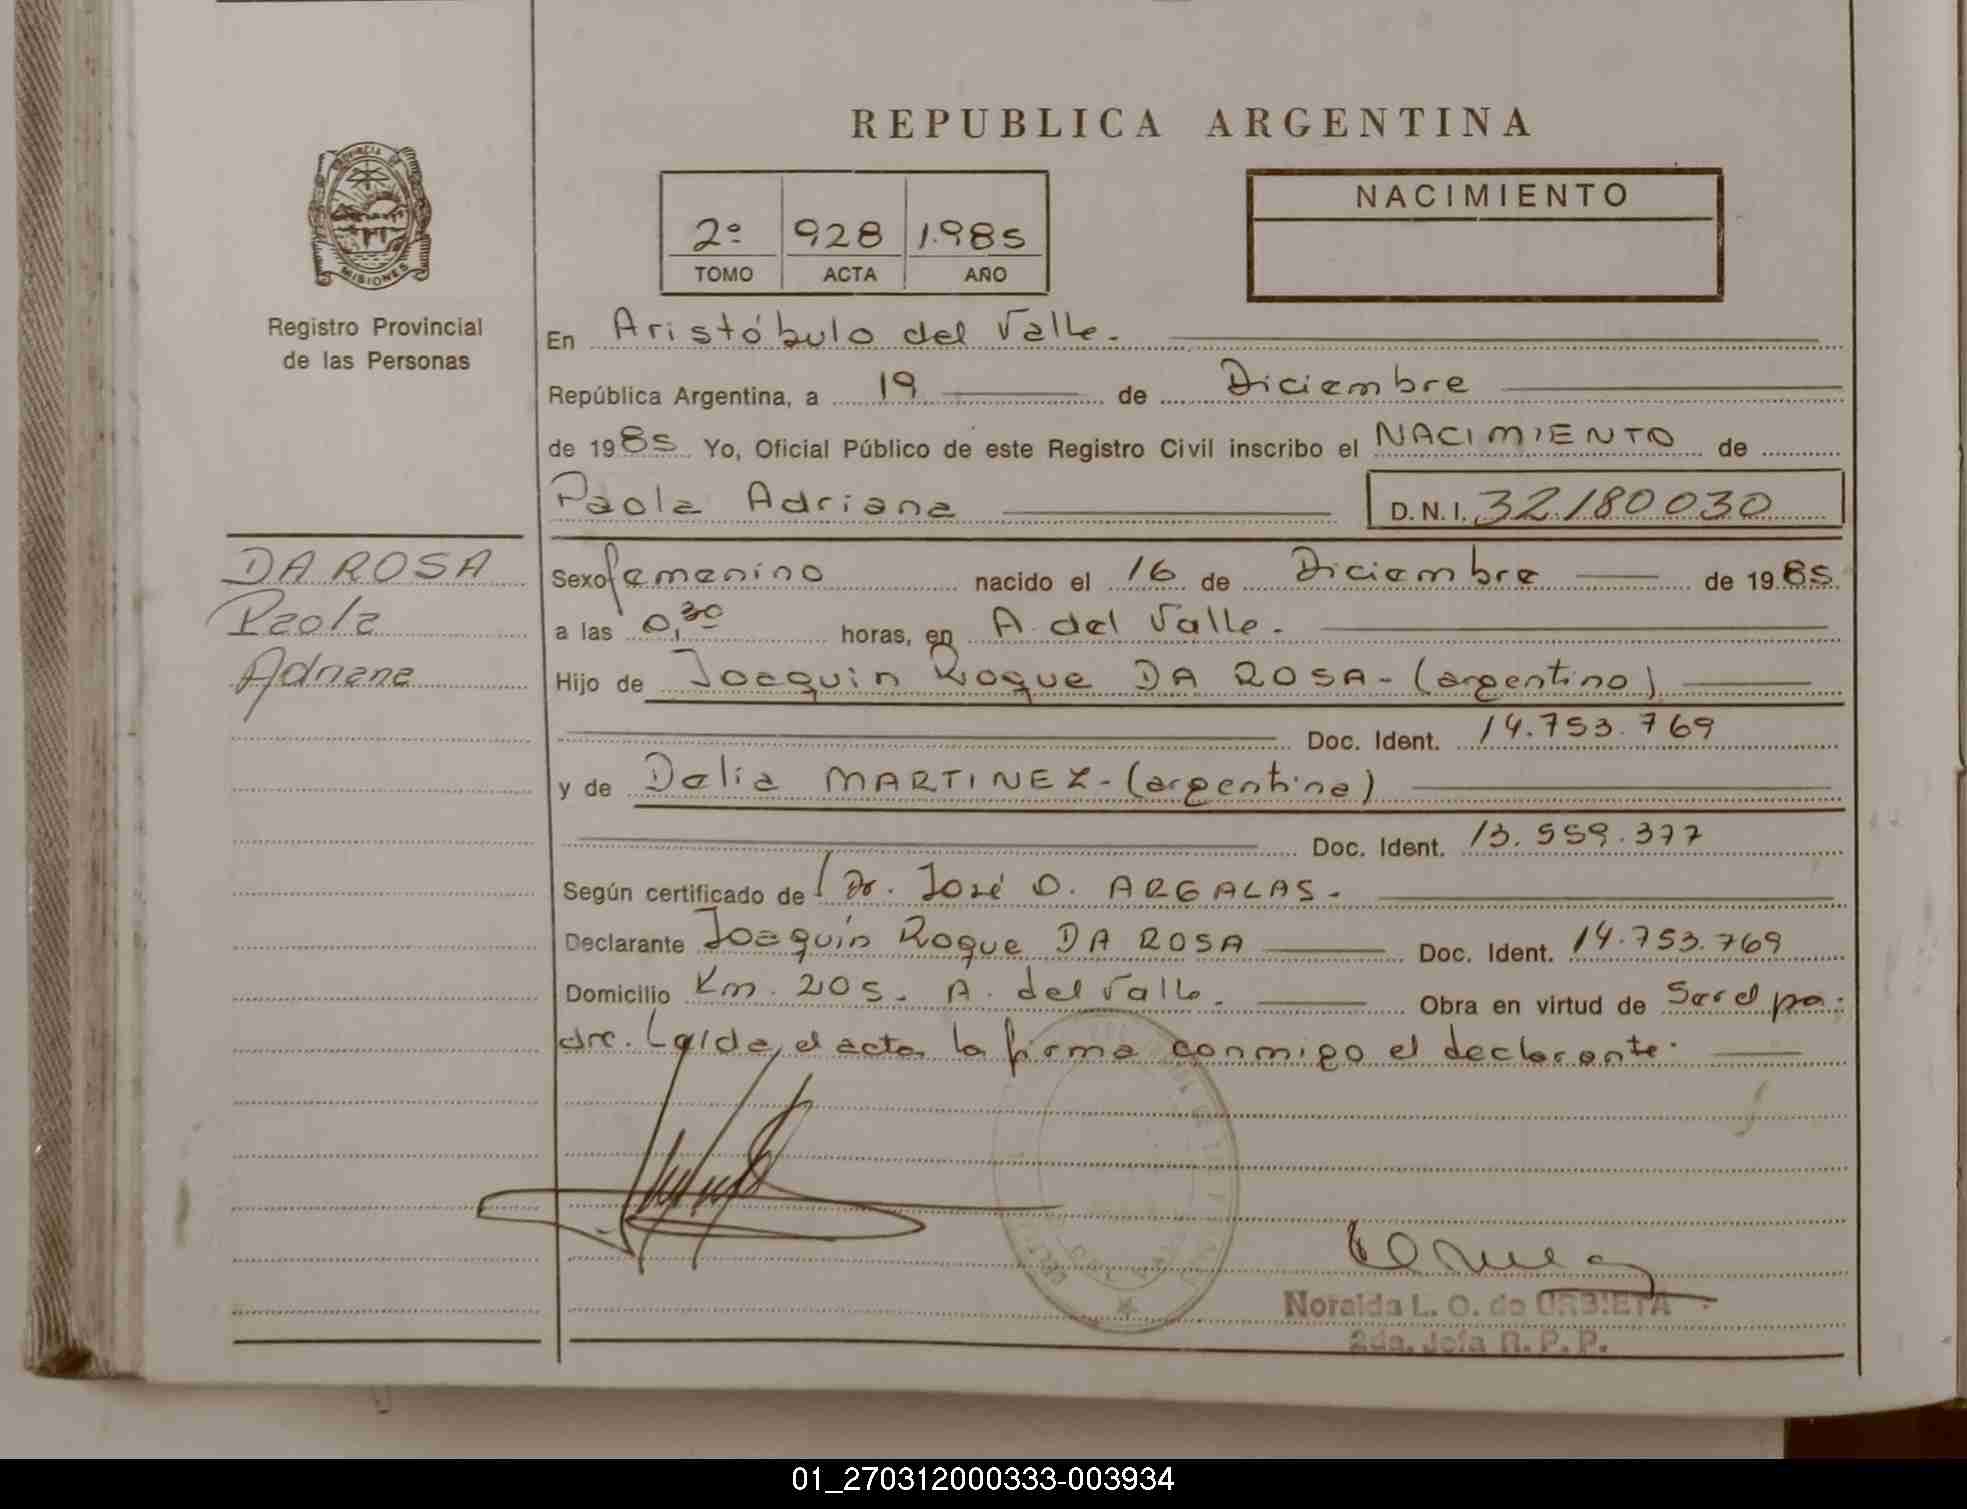 REPUBLICA ARGENTINA
PROVINCIA DE
MISIONES
Registro Provincial
de las Personas
2º 928 1.985
TOMO ACTA AÑO
NACIMIENTO
En Aristóbulo del Valle.
República Argentina, a 19 de Diciembre
de 1985 Yo, Oficial Público de este Registro Civil inscribo el NACIMIENTO de
Paola Adriana D.N.I. 32180030
DA ROSA
Paola
Adriana
Sexo femenino nacido el 16 de Diciembre de 1985
a las 0,30 horas, en A. del Valle.
Hijo de Joaquin Roque DA ROSA - (argentino)
Doc. Ident. 14.753.769
y de Delia MARTINEZ - (argentina)
Doc. Ident. 13.559.377
Según certificado de Dr. José O. ARGALAS.
Declarante Joaquín Roque DA ROSA Doc. Ident. 14.753.769
Domicilio Km. 205. A. del Valle. Obra en virtud de Ser el pa-
dre. Leída, el acta la firma conmigo el declarante.
Noralda L. O. de URBIETA
2da. Jefa R. P. P.
01_270312000333-003934